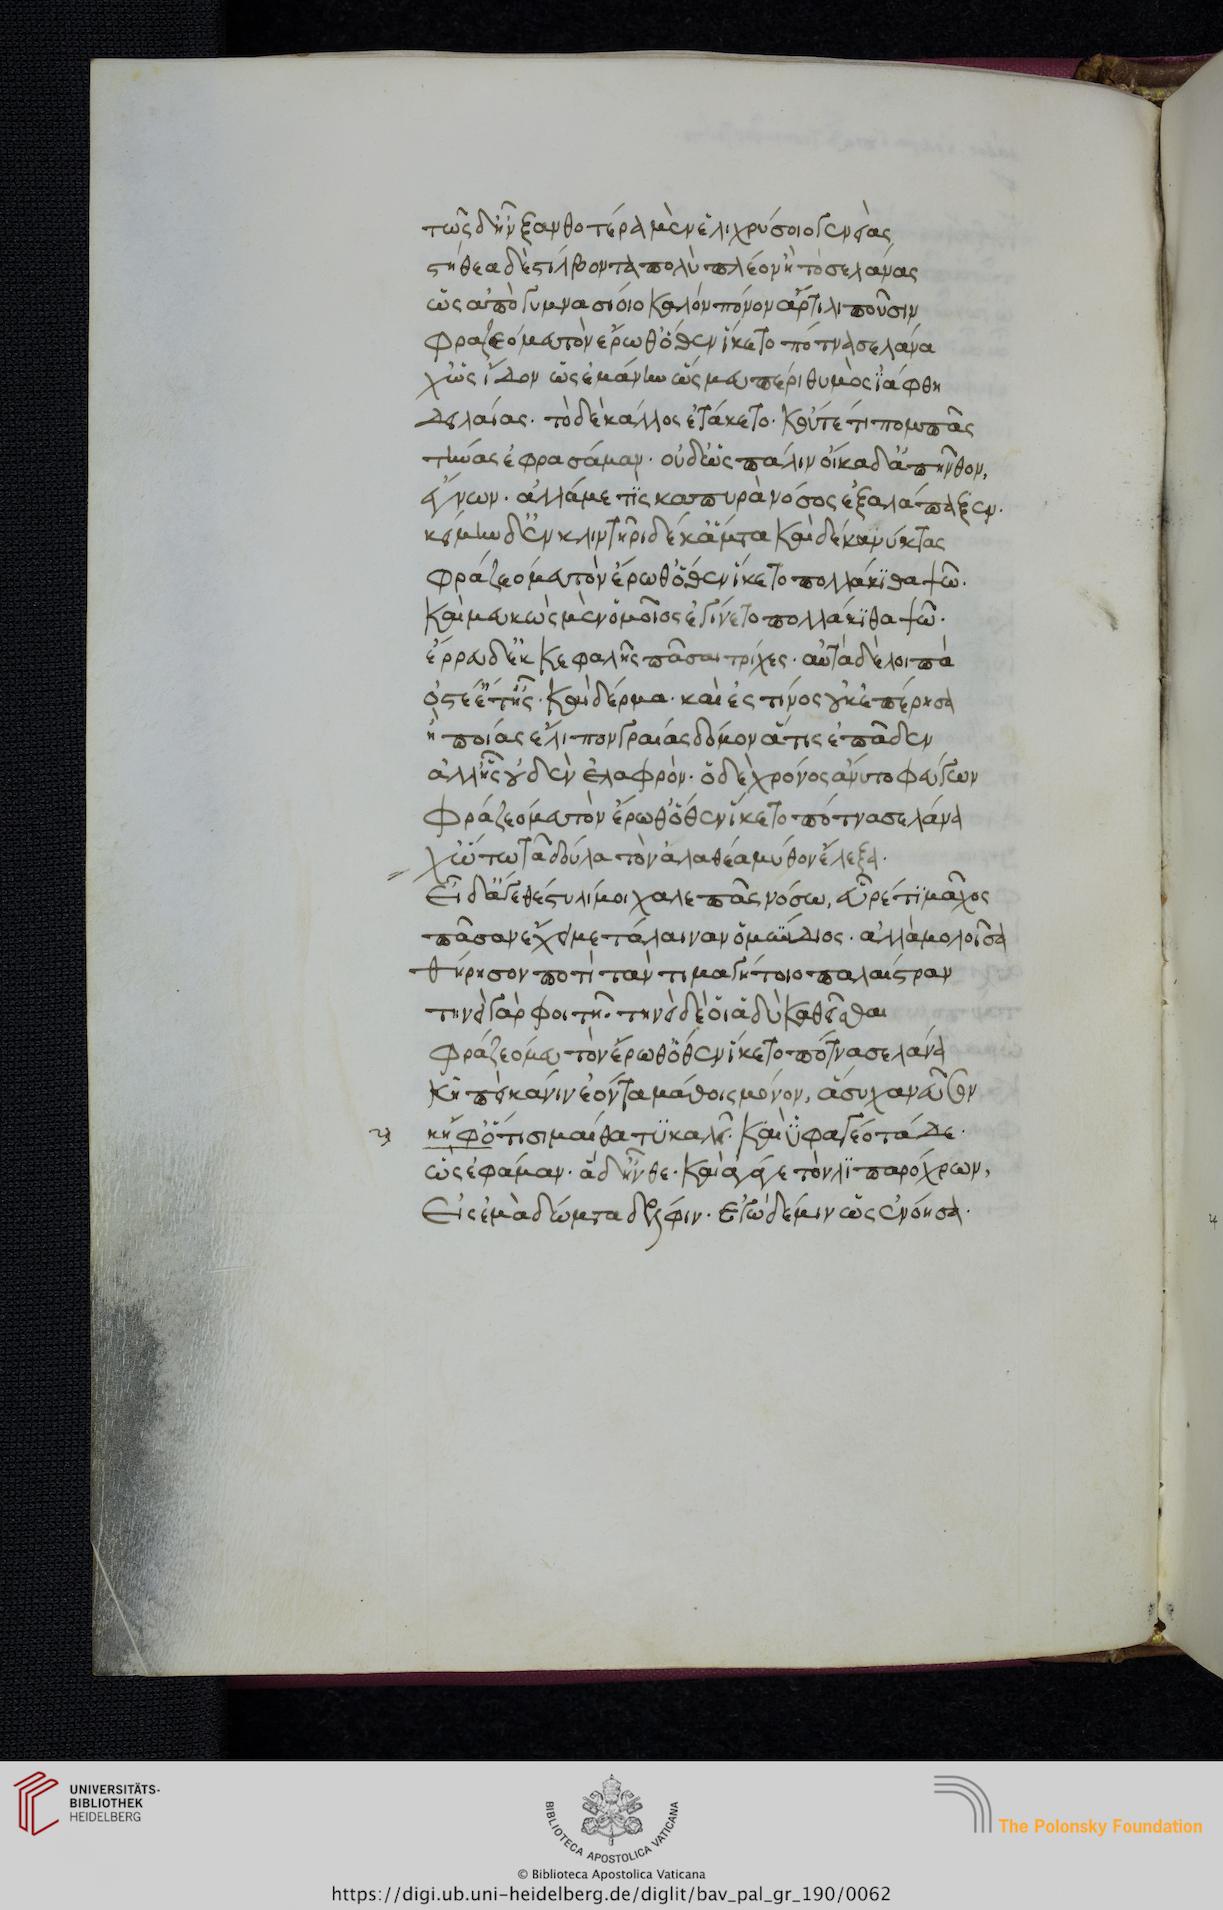 τῶς δ' ἦν ξανθοτέρα μὲν ἑλιχρύσοιο γενειὰς
στήθεα δὲ στίλβοντα πολὺ πλέον ἢ τὸ σελάνας
ὡς ἀπὸ γυμνασίοιο καλόν πόνον ἄρτι λιποῦσιν
φράζεό μευ τὸν ἔρωθ' ὅθεν ἵκετο πότνα σελάνα
χ' ὡς ἴδον ὡς ἐμάνην ὥς μευ πέρι θυμὸς ἰάφθη
δειλαίας· τὸ δὲ κάλλος ἐτάκετο· κοὔτέ τι πομπᾶς
τήνας ἐφρασάμαν· οὐδ' ὡς πάλιν οἴκαδ' ἀπῆνθον,
ἔγνων· ἀλλά με τὶς καπυρὰ νόσος ἐξαλάπαξεν·
κείμην δ' ἐν κλιντῆρι δέκ' ἄματα καὶ δέκα νύκτας
φράζεό μευ τὸν ἔρωθ' ὅθεν ἵκετο πολλάκι θάψω·
καί μευ χρὼς μὲν ὁμοῖος ἐγίνετο πολλάκι θάψω·
ἔρρευν δ' ἐκ κεφαλῆς πᾶσαι τρίχες· αὐτὰ δὲ λοιπὰ
ὀστέ' ἔτ' ἦς· καὶ δέρμα· καὶ ἐς τίνος οὐκ ἐπέρησα
ἢ ποίας ἔλιπον γραίας δόμον ἅτις ἐπᾶδεν
ἀλλ' ἦς οὐδὲν ἐλαφρὸν· ὁ δὲ χρόνος ἄνυτο φεύγων
φράζεό μευ τὸν ἔρωθ' ὅθεν ἵκετο πότνα σελάνα
χ' οὕτω τᾶ δούλα τὸν ἀλαθέα μῦθον ἔλεξα·
εἰ δ' ἄγε θέστυλί μοι χαλεπᾶς νόσω, εὑρέ τι μᾶχος
πᾶσαν ἔχει με τάλαιναν ὁ μύνδιος· ἀλλὰ μολοῖσα
τήρησον ποτὶ τὰν τιμαγήτοιο παλαίστραν
τηνεὶ γὰρ φοιτῆ· τηνεὶ δέ οἱ ἁδὺ καθῆσθαι
φράζεό μευ τὸν ἔρωθ' ὅθεν ἵκετο πότνα σελάνα
κἤπεί κά νιν ἐόντα μάθοις μόνον, ἅσυχα νεῦσον
κἤφ' ὅτι σιμαίθα τὺ καλεῖ· καὶ ὑφαγέο τᾷδε·
ὡς ἐφάμαν· ἁ δ' ἦνθε· καὶ ἄγαγε τὸν λιπαρόχρων,
εἰς ἐμὰ δώματα δέλφιν· ἐγὼ δέ μιν ὡς ἐνόησα·
UNIVERSITÄTS-
BIBLIOTHEK
HEIDELBERG
BIBLIOTECA APOSTOLICA VATICANA
The Polonsky Foundation
© Biblioteca Apostolica Vaticana
https://digi.ub.uni-heidelberg.de/diglit/bav_pal_gr_190/0062